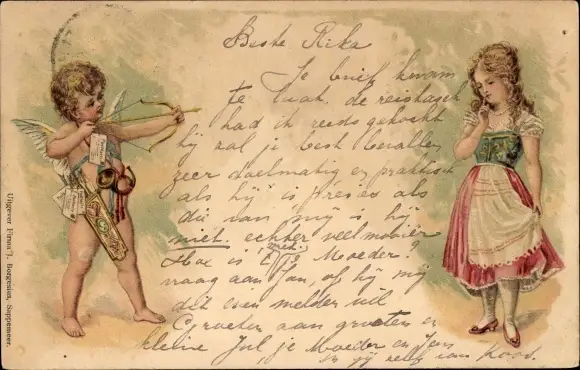 Beste Rika
Je brief kwam
te laat. de reistasch
had ik reeds gekocht
hij zal je best bevallen,
zeer doelmatig en praktisch
als hij is Precies als
die van mij is hij
niet, echter veel mooier
Hoe is met je Moeder?
vraag aan Jan, of hij mij
dit even melden wil
Groeten aan grooten en
kleine Jul, je Moeder en Jan
en jij zelf van Koos.
Uitgever Firma J. Borgesius, Sappemeer.